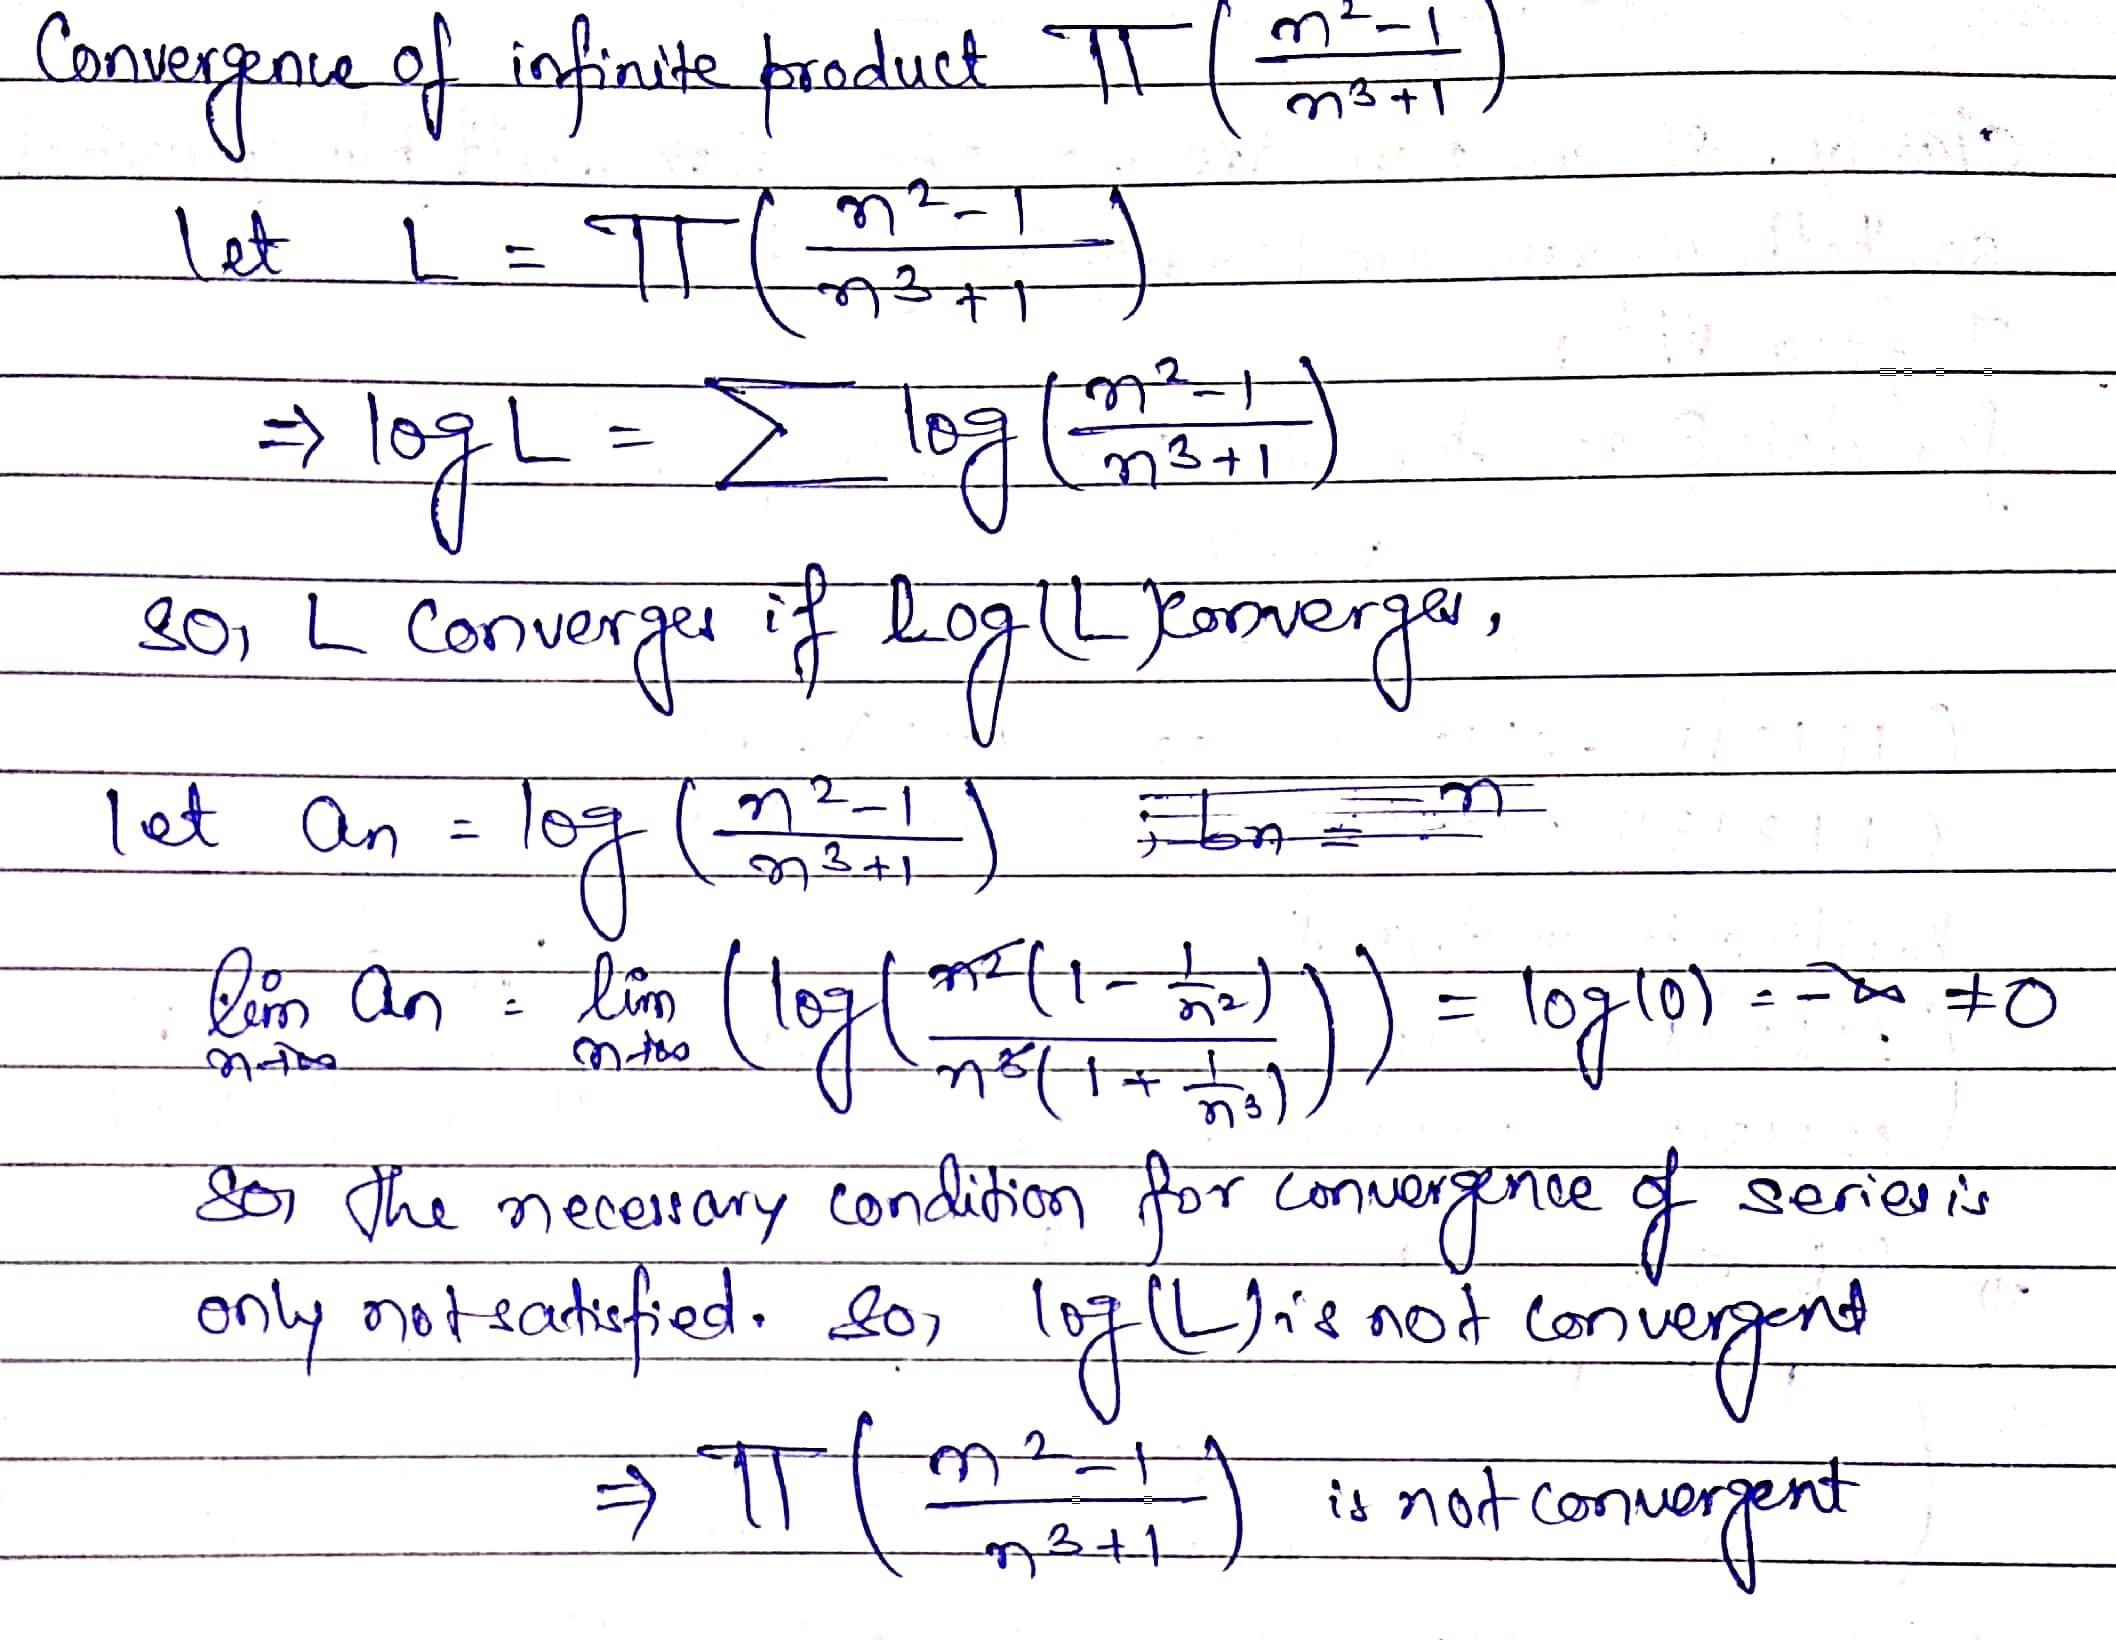 Convergence of infinite product Π (n²-1 / n³+1)
let L = Π (n²-1 / n³+1)
⇒ log L = Σ log (n²-1 / n³+1)
So, L Converges if log(L) converges,
let an = log (n²-1 / n³+1) ; bn = n
lim n→∞ an = lim n→∞ (log (n²(1 - 1/n²) / n³(1 + 1/n³))) = log(0) = -∞ ≠ 0
So, the necessary condition for convergence of series is
only not satisfied. So, log(L) is not convergent
⇒ Π (n²-1 / n³+1) is not convergent